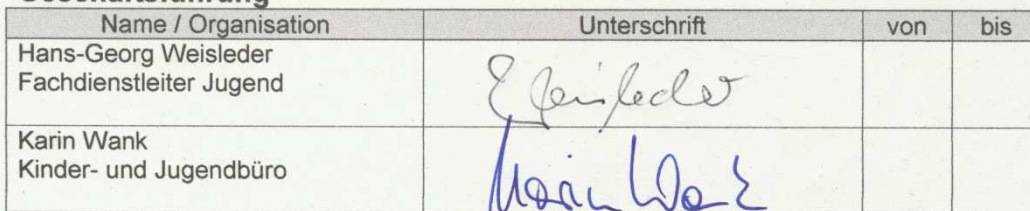 Geschäftsführung
Name / Organisation Unterschrift von bis
Hans-Georg Weisleder
Fachdienstleiter Jugend
Weisleder
Karin Wank
Kinder- und Jugendbüro
Karin Wank